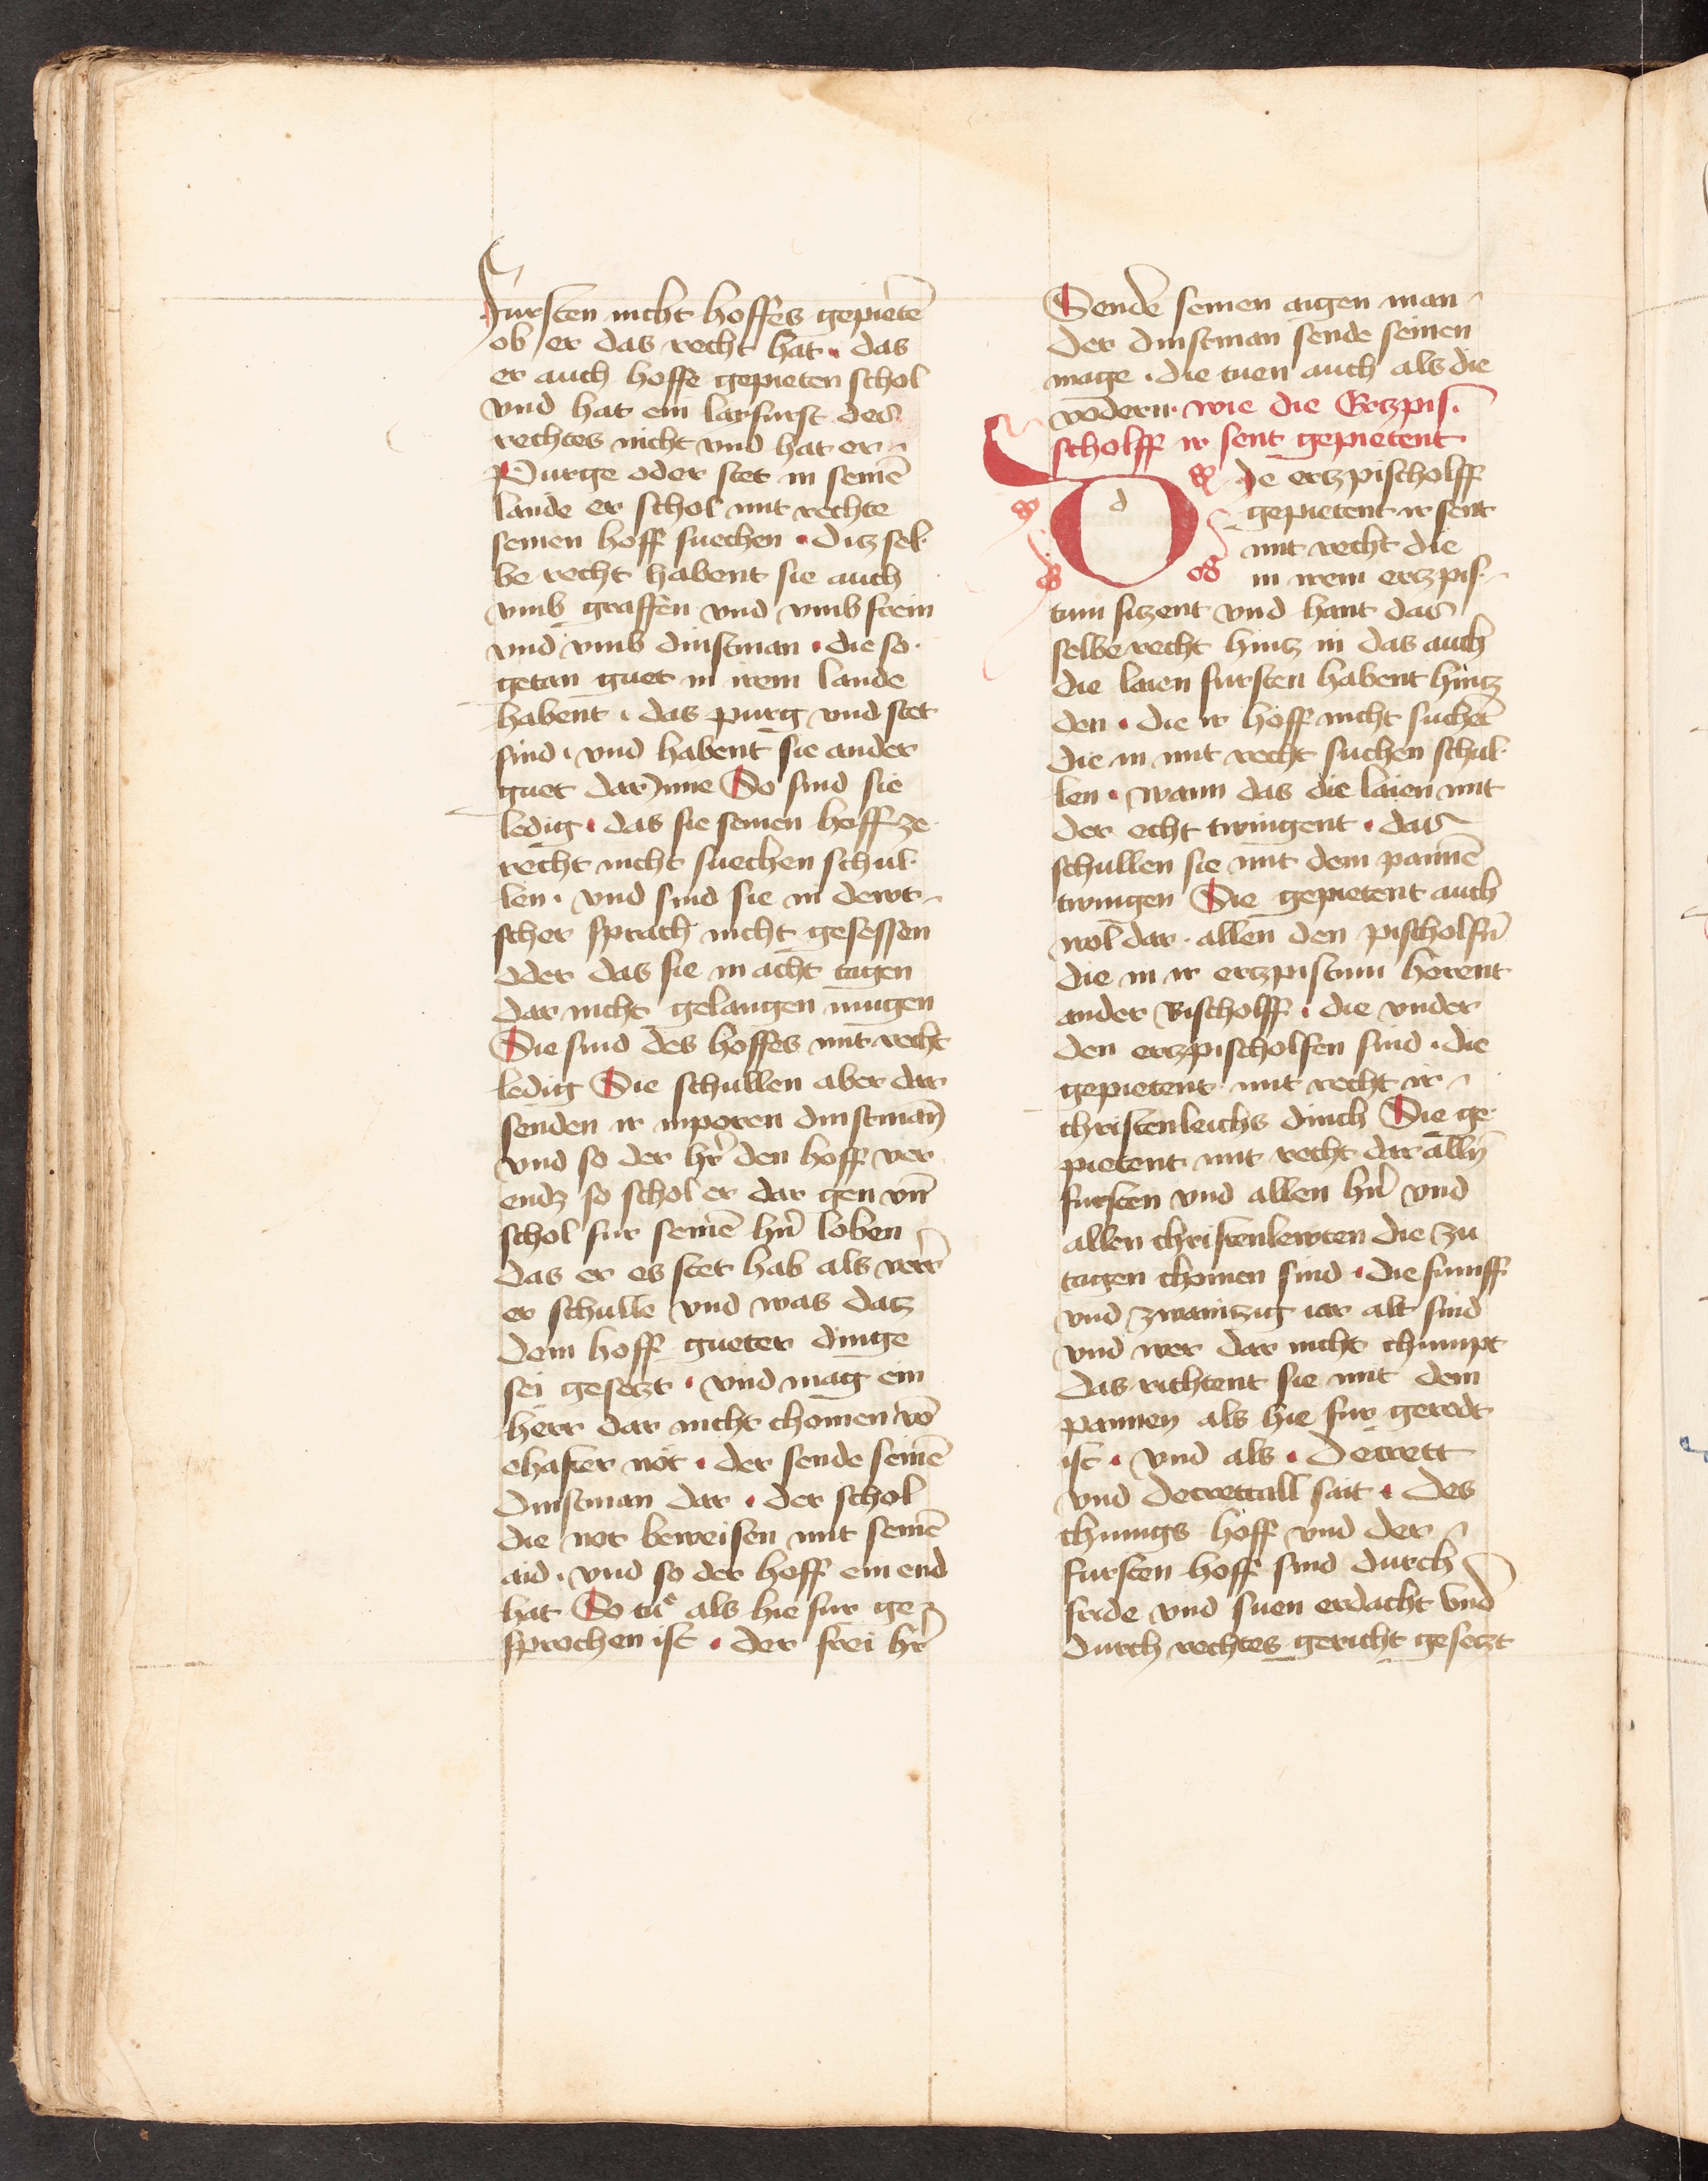 fursten nicht hoffes gepietē
ob er das recht hat · das
er auch hoffe gepieten schol
vnd hat ein laifurst des
rechtes nicht vnd hat er
Purge oder stet in seinē
lande er schol mit rechte
seinen hoff suechen · ditz sel·
be recht habent sie auch
vmb graffen vnd vmb frein
vnd vmb dinstman · die so·
getan guet in irem lande
habent · das purg vnd stet
sind · vnd habent sie ander
guet darinne So sind sie
ledig · das sie seinen hoff ze
recht nicht suechen schul·
len · vnd sind sie in dewt
scher sprach nicht gesessen
oder das sie in acht tagen
dar nicht gelangen mugen
Sie sind des hoffes mit recht
ledig Sie schullen aber dar
senden ir inporen dinstman
vnd so der hr̄ den hoff ver
endz so schol er dar gen vn̄
schol fur seinē hn̄ loben
das er es stet hab als verr
er schulle vnd was datz
dem hoff gueter dinge
sei gesetzt · vnd mag ein
herr dar nicht chomen vō
ehafter not · der sende seinē
dinstman dar · der schol
die not beweisen mit seinē
aid · vnd so der hoff ein end
hat So tuͤ als hie fur ge
sprochen ist · der frei hr̄
Sende seinen aigen man
der dinstman sende seinen
mage · die tuen auch als die
vodern · wie die Ertzpis·
scholff ir sent gepietent
Die ertzpischolff
gepietent ir sent
mit recht die
in irem ertzpis·
tum sizent vnd hant das
selbe recht hintz in das auch
die laien fursten habent hintz
den · die ir hoff nicht suchēt
die in mit recht suchen schul·
len · wann das die laien mit
der echt twingent · das
schullen sie mit dem pannē
twingen Sie gepietent auch
wol dar · allen den pischolfn̄
die in ir ertzpistum horent
ander Bischolff · die vnder
den ertzpischolfen sind · die
gepietent mit recht ir
christenleichs dinch Sie ge·
pietent mit recht dar alln̄
fursten vnd allen hn̄ vnd
allen christenlewten die zu
tagen chomen sind · die fumff
vnd zwaintzig iar alt sind
vnd wer dar nicht chumpt
das richtent sie mit dem
pannen als hie fur geredt
ist · vnd als · Decrett
vnd decretall sait · des
chunigs hoff vnd der
fursten hoff sind durch
fride vnd suen erdacht vnd
durch rechtes gericht gesetzt